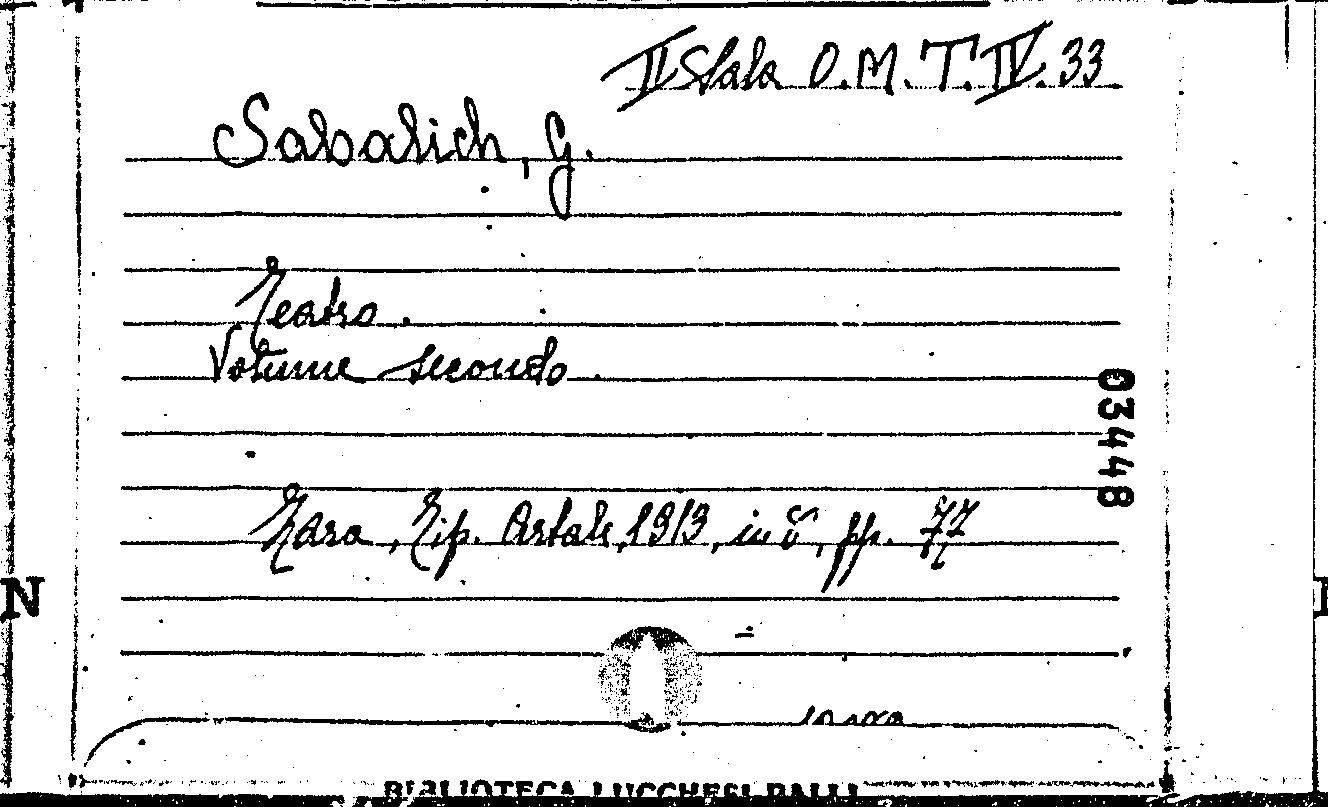 II Sala O.M.T.IV.33
Sabalich, G.
Teatro.
Volume secondo.
03448
Zara, Tip. Artale, 1913, in 8°, pp. 77
N
BIBLIOTECA LUCCHESI PALLI